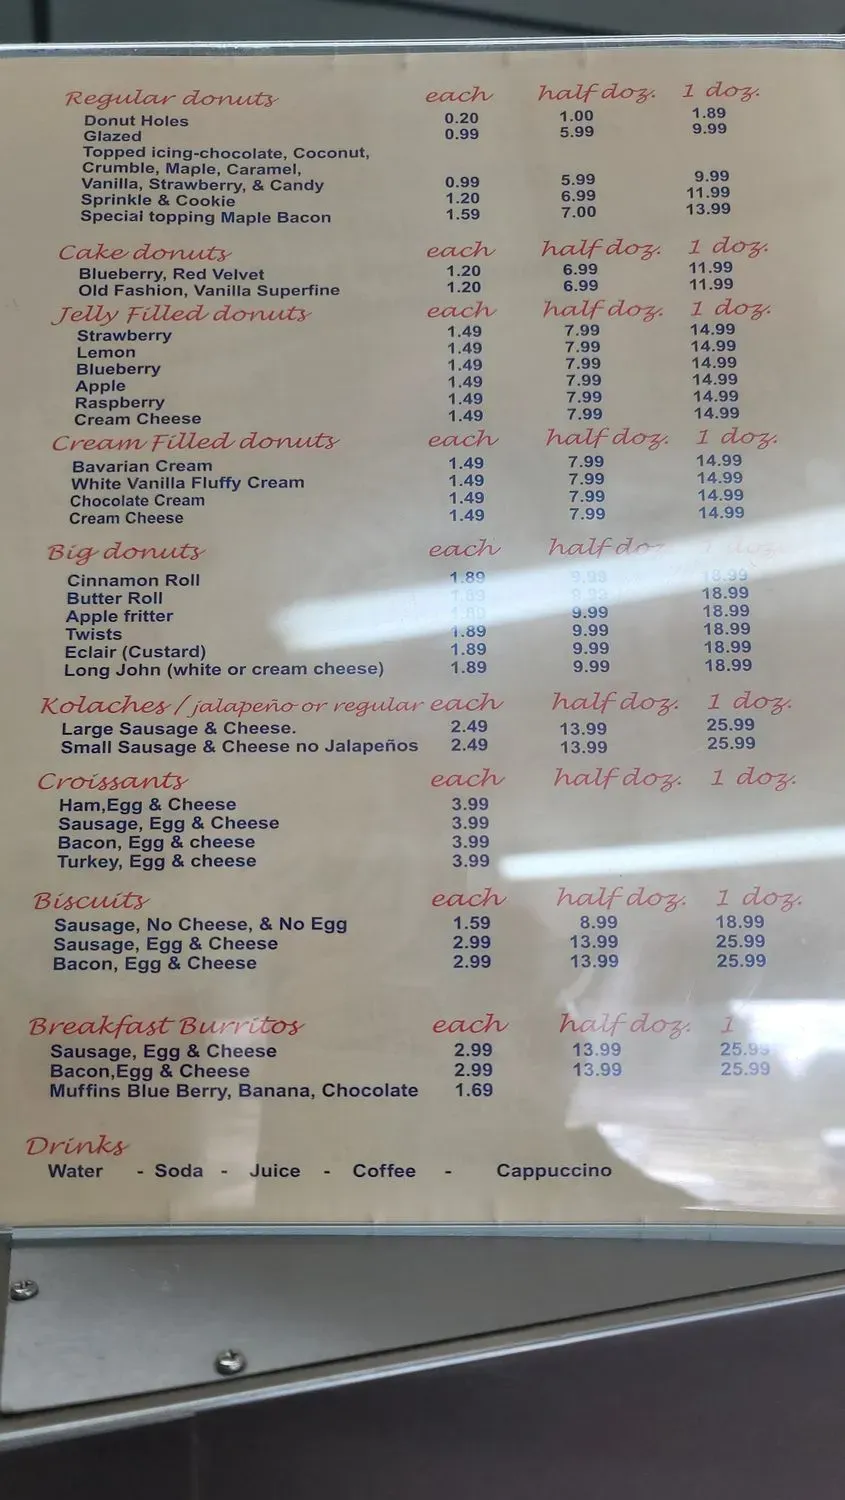 Regular donuts each half doz. 1 doz.
Donut Holes 0.20 1.00 1.89
Glazed 0.99 5.99 9.99
Topped icing-chocolate, Coconut,
Crumble, Maple, Caramel,
Vanilla, Strawberry, & Candy 0.99 5.99 9.99
Sprinkle & Cookie 1.20 6.99 11.99
Special topping Maple Bacon 1.59 7.00 13.99
Cake donuts each half doz. 1 doz.
Blueberry, Red Velvet 1.20 6.99 11.99
Old Fashion, Vanilla Superfine 1.20 6.99 11.99
Jelly Filled donuts each half doz. 1 doz.
Strawberry 1.49 7.99 14.99
Lemon 1.49 7.99 14.99
Blueberry 1.49 7.99 14.99
Apple 1.49 7.99 14.99
Raspberry 1.49 7.99 14.99
Cream Cheese 1.49 7.99 14.99
Cream Filled donuts each half doz. 1 doz.
Bavarian Cream 1.49 7.99 14.99
White Vanilla Fluffy Cream 1.49 7.99 14.99
Chocolate Cream 1.49 7.99 14.99
Cream Cheese 1.49 7.99 14.99
Big donuts each half do 1 doz.
Cinnamon Roll 1.89 9.99 18.99
Butter Roll 1.89 9.99 18.99
Apple fritter 1.89 9.99 18.99
Twists 1.89 9.99 18.99
Eclair (Custard) 1.89 9.99 18.99
Long John (white or cream cheese) 1.89 9.99 18.99
Kolaches / jalapeño or regular each half doz. 1 doz.
Large Sausage & Cheese. 2.49 13.99 25.99
Small Sausage & Cheese no Jalapeños 2.49 13.99 25.99
Croissants each half doz. 1 doz.
Ham,Egg & Cheese 3.99
Sausage, Egg & Cheese 3.99
Bacon, Egg & cheese 3.99
Turkey, Egg & cheese 3.99
Biscuits each half doz. 1 doz.
Sausage, No Cheese, & No Egg 1.59 8.99 18.99
Sausage, Egg & Cheese 2.99 13.99 25.99
Bacon, Egg & Cheese 2.99 13.99 25.99
Breakfast Burritos each half doz. 1
Sausage, Egg & Cheese 2.99 13.99 25.99
Bacon,Egg & Cheese 2.99 13.99 25.99
Muffins Blue Berry, Banana, Chocolate 1.69
Drinks
Water - Soda - Juice - Coffee - Cappuccino